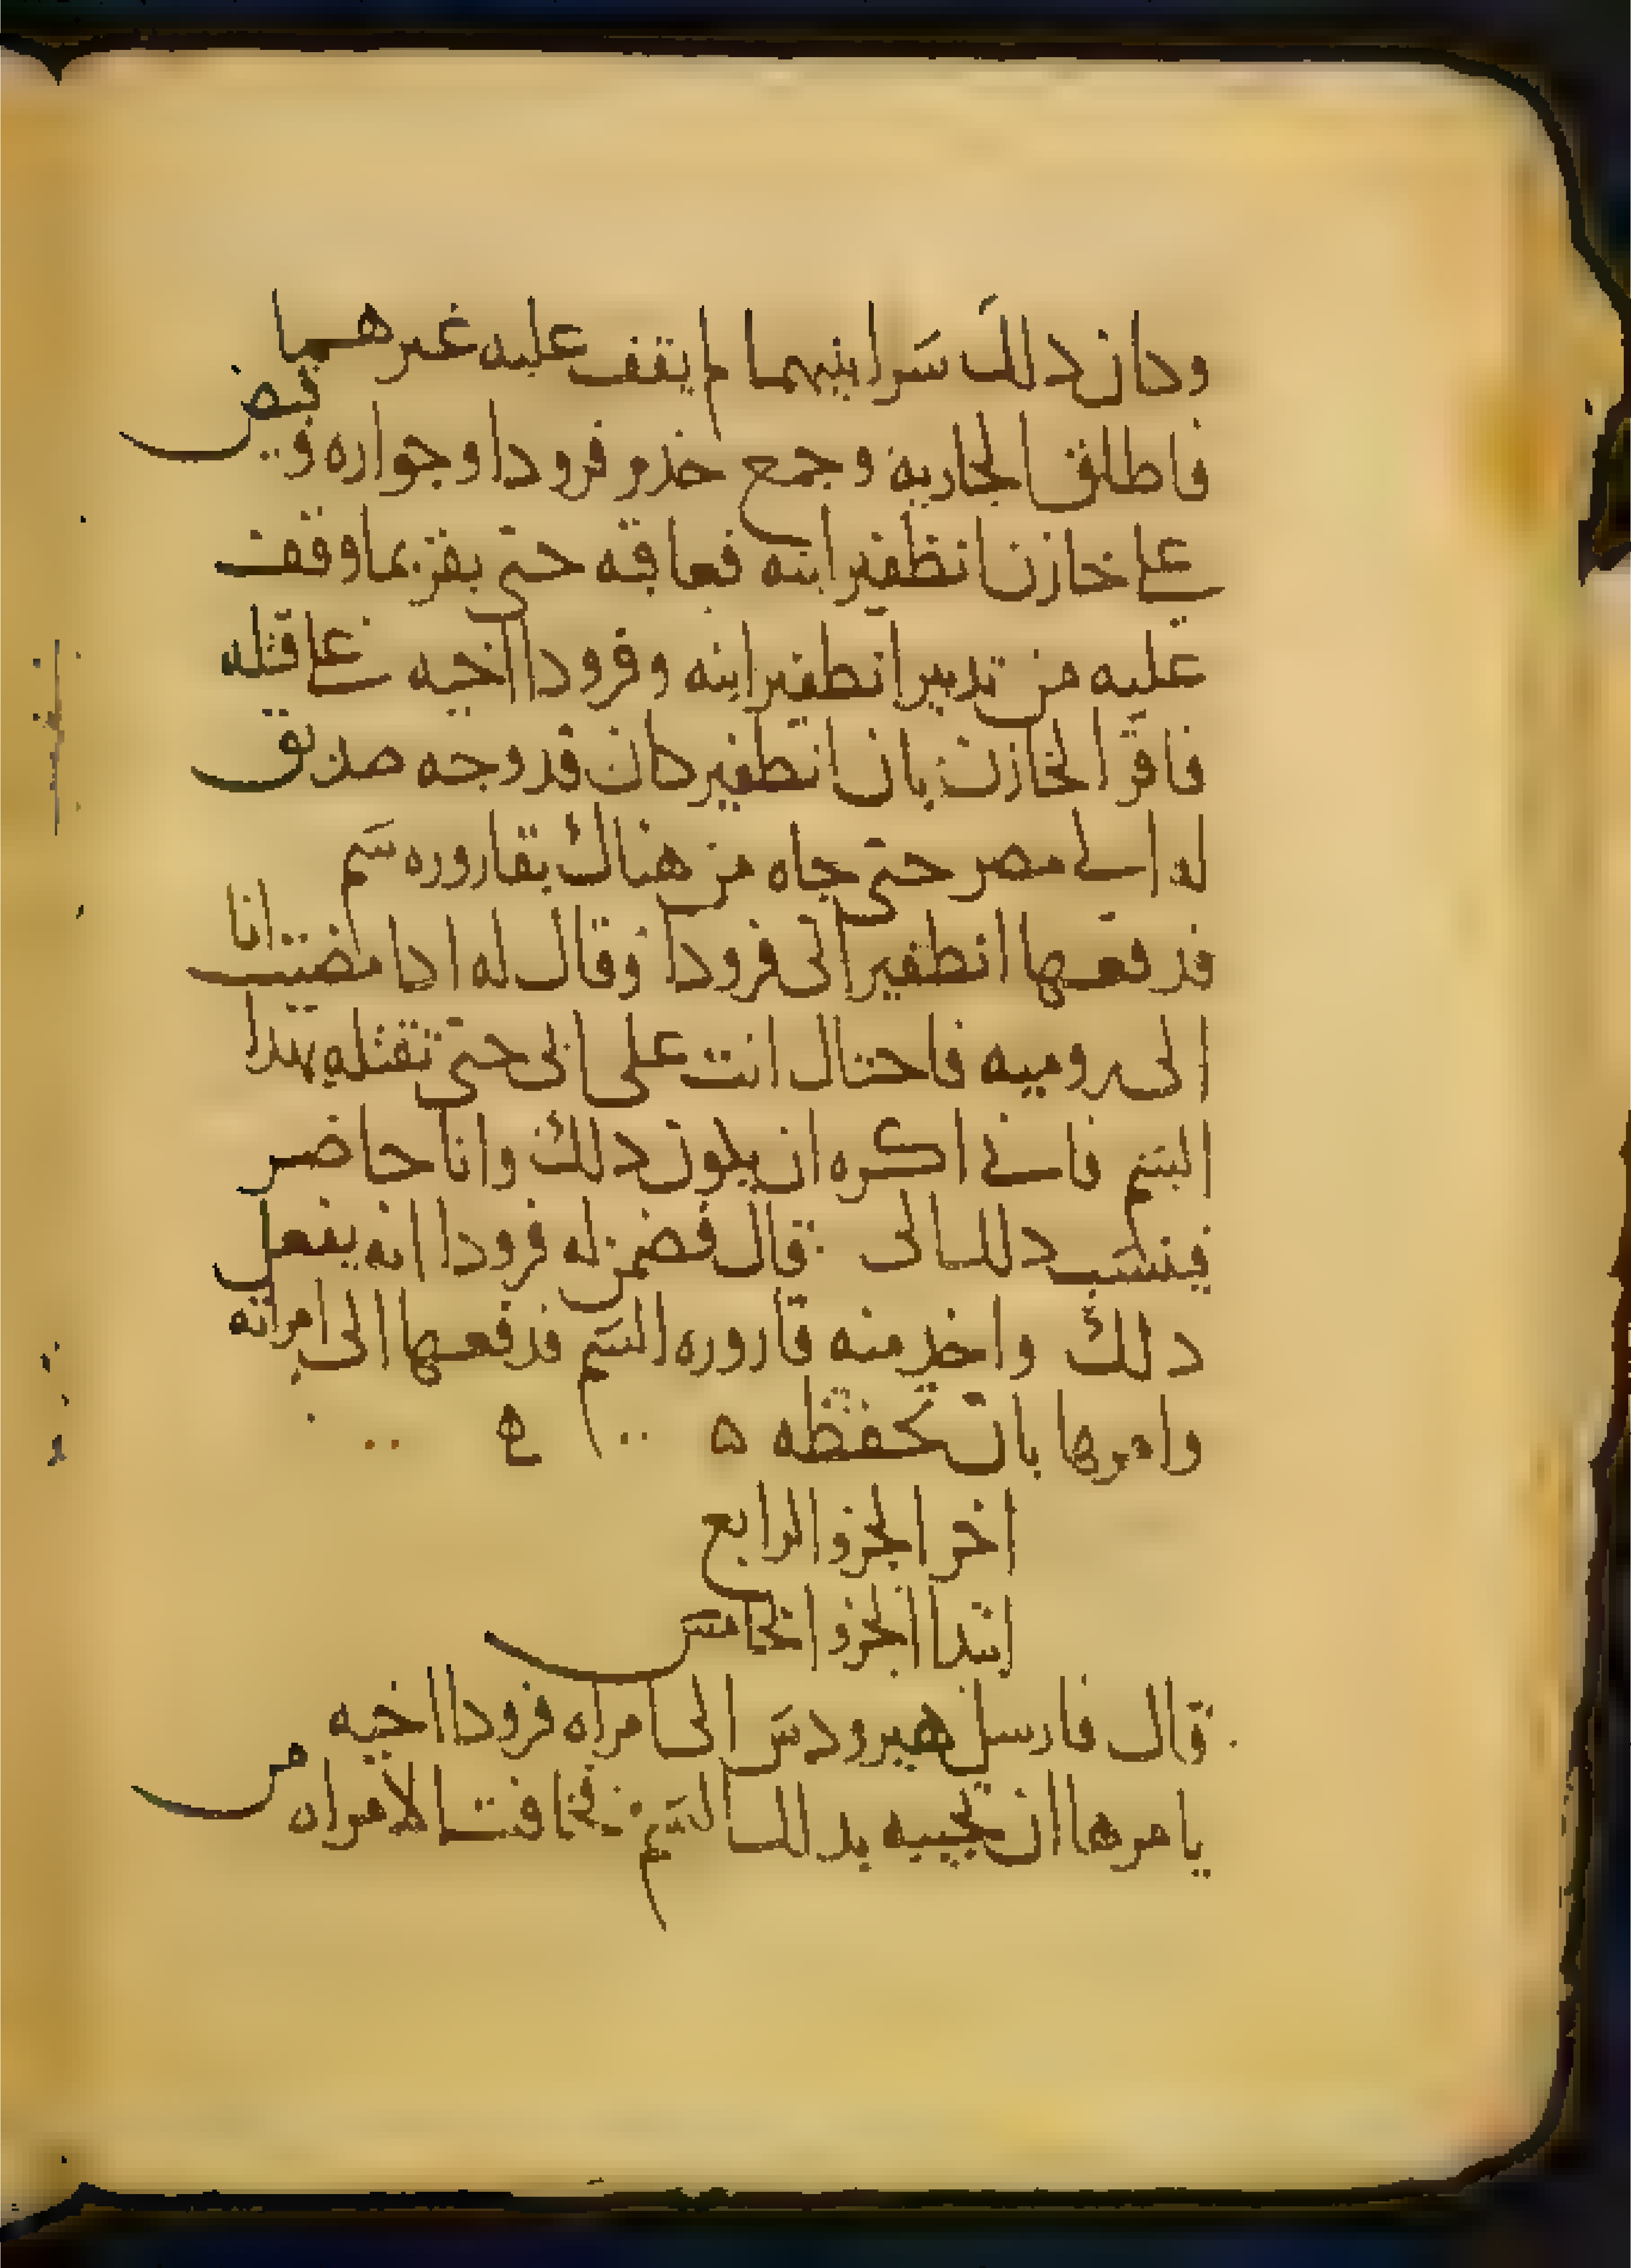 وكان دلك سرا بينهما لم يقف عليه غيرهما
فاطلق الجاريه وجمع خدم فرودا وجواره وقبض
على خازن انطفير ابنه فعاقبه حتى يقر بما وقف
عليه من تدبير انطفير ابنه وفرودا اخيه على قتله
فاقر الخازن بان انطفير كان قد وجه صديق
له الى مصر حتى جاه من هناك بقاروره سم
فدفعها انطفير الى فرودا وقال له ادا مضيت انا
الى روميه فاحتال انت على ابى حتى تقتله بهدا
السم فانى اكره ان يكون دلك وانا حاضر
فينسب دلك الى قال فضمن له فرودا انه يفعل
دلك واخد منه قاروره السم فدفعها الى امراته
وامرها بان تحفظه ه
اخر الجزو الرابع
ابتدا الجزو الخامس
قال فارسل هيرودس الى امراه فرودا اخيه
يامرها ان تجيبه بدلك السم فخافت الامراه من